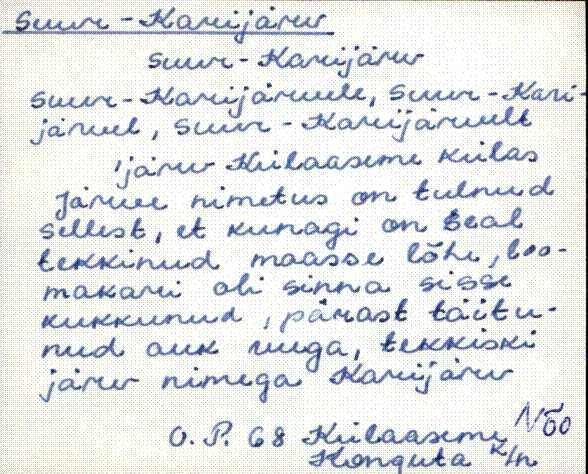 Suur-Karijärv
Suur-Karijärv
Suur-Karijärvele, Suur-Kari-
järvel, Suur-Karijärvelt
'järv Külaaseme külas
Järve nimetus on tulnud
sellest, et kunagi on seal
tekkinud maasse lõhe, loo-
makari oli sinna sisse
kukkunud, pärast täitu-
nud auk veega, tekkiski
järv nimega Karijärv
Nõo
O. P. 68 Külaaseme
Konguta k/n